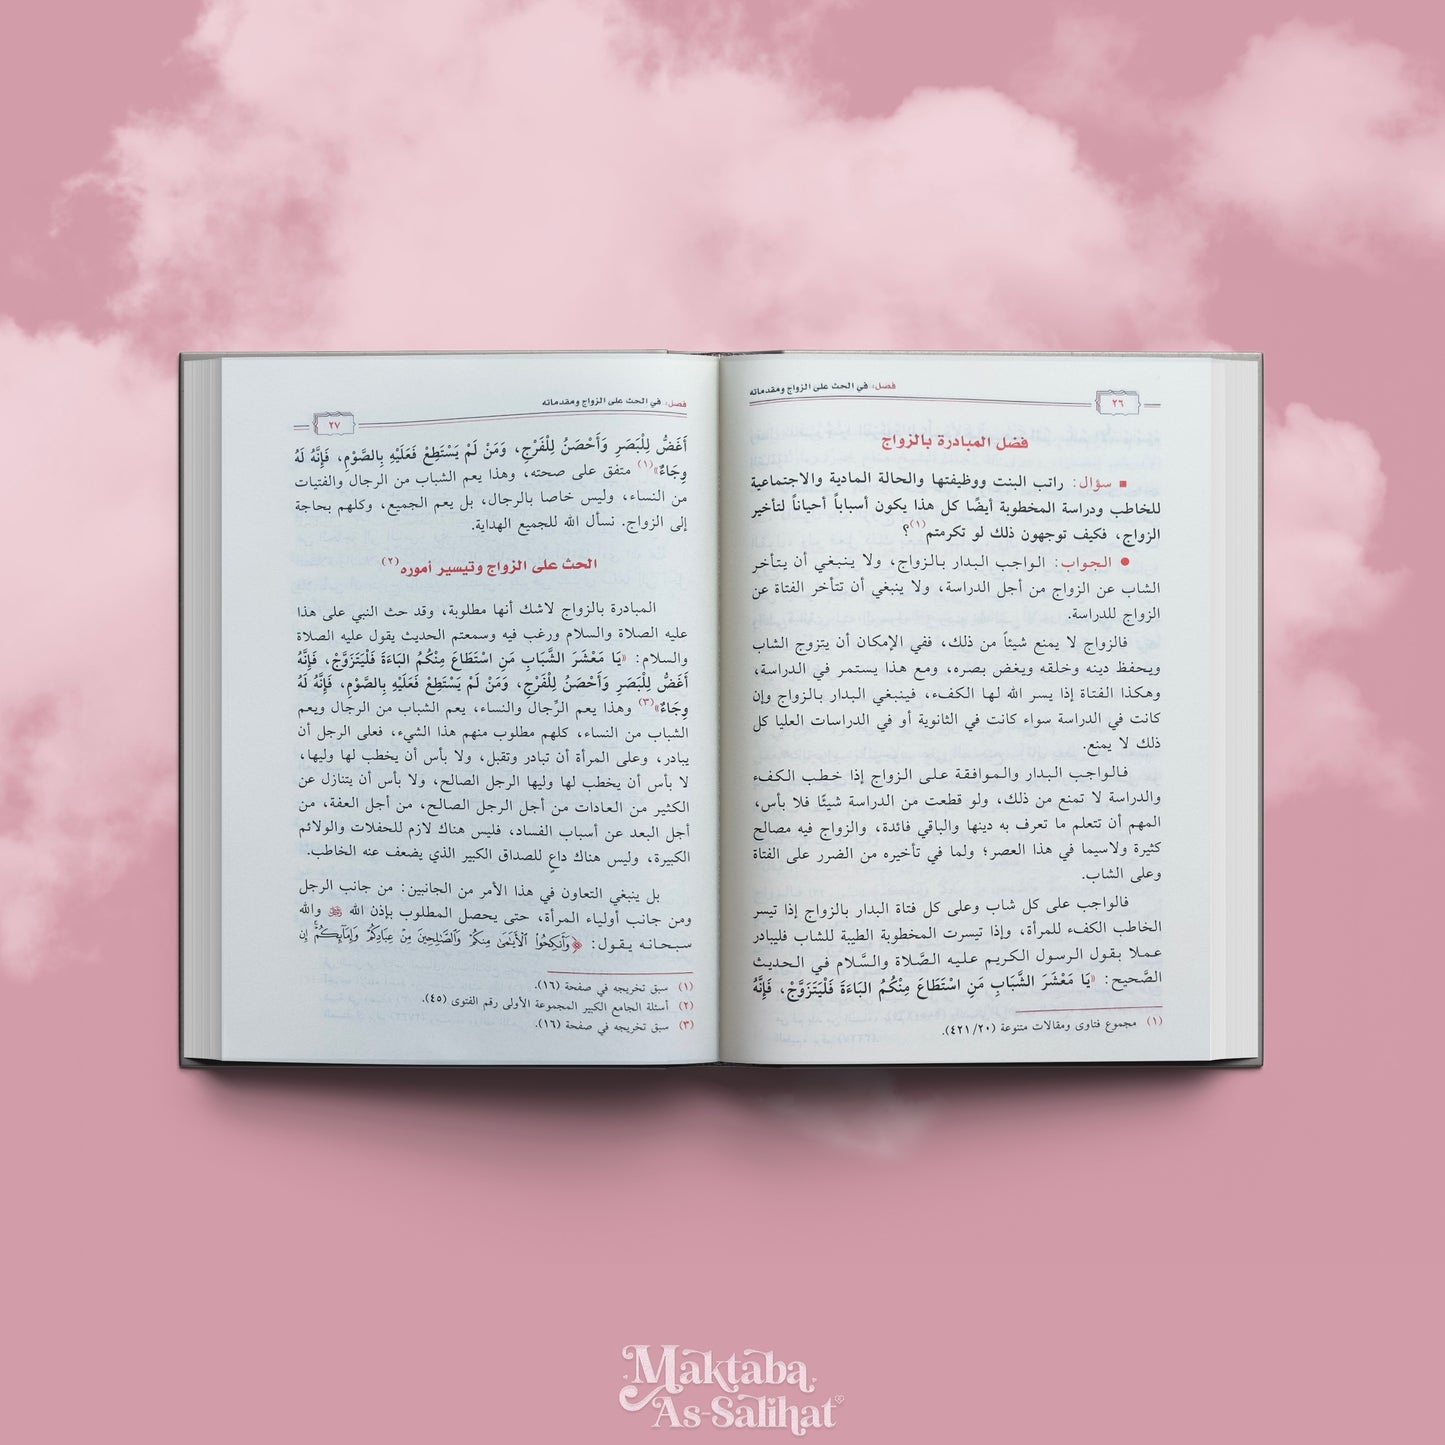 فصل: في الحث على الزواج ومقدماته
٢٦
فضل المبادرة بالزواج
■ سؤال: راتب البنت ووظيفتها والحالة المادية والاجتماعية
للخاطب ودراسة المخطوبة أيضًا كل هذا يكون أسباباً أحياناً لتأخير
الزواج، فكيف توجهون ذلك لو تكرمتم(١)؟
● الجواب: الواجب البدار بالزواج، ولا ينبغي أن يتأخر
الشاب عن الزواج من أجل الدراسة، ولا ينبغي أن تتأخر الفتاة عن
الزواج للدراسة.
فالزواج لا يمنع شيئاً من ذلك، ففي الإمكان أن يتزوج الشاب
ويحفظ دينه وخلقه ويغض بصره، ومع هذا يستمر في الدراسة،
وهكذا الفتاة إذا يسر الله لها الكفء، فينبغي البدار بالزواج وإن
كانت في الدراسة سواء كانت في الثانوية أو في الدراسات العليا كل
ذلك لا يمنع.
فالواجب البدار والموافقة على الزواج إذا خطب الكفء
والدراسة لا تمنع من ذلك، ولو قطعت من الدراسة شيئًا فلا بأس،
المهم أن تتعلم ما تعرف به دينها والباقي فائدة، والزواج فيه مصالح
كثيرة ولاسيما في هذا العصر؛ ولما في تأخيره من الضرر على الفتاة
وعلى الشاب.
فالواجب على كل شاب وعلى كل فتاة البدار بالزواج إذا تيسر
الخاطب الكفء للمرأة، وإذا تيسرت المخطوبة الطيبة للشاب فليبادر
عملا بقول الرسول الكريم عليه الصَّلاة والسَّلام في الحديث
الصَّحيح: «يَا مَعْشَرَ الشَّبَابِ مَنِ اسْتَطَاعَ مِنْكُمُ البَاءَةَ فَلْيَتَزَوَّجْ، فَإِنَّهُ
(١) مجموع فتاوى ومقالات متنوعة (٤٢١/٢٠).
فصل: في الحث على الزواج ومقدماته
٢٧
أَغَضُّ لِلْبَصَرِ وَأَحْصَنُ لِلْفَرْجِ، وَمَنْ لَمْ يَسْتَطِعْ فَعَلَيْهِ بِالصَّوْمِ، فَإِنَّهُ لَهُ
وِجَاءٌ»(١) متفق على صحته، وهذا يعم الشباب من الرجال والفتيات
من النساء، وليس خاصا بالرجال، بل يعم الجميع، وكلهم بحاجة
إلى الزواج. نسأل الله للجميع الهداية.
الحث على الزواج وتيسير أموره(٢)
المبادرة بالزواج لاشك أنها مطلوبة، وقد حث النبي على هذا
عليه الصلاة والسلام ورغب فيه وسمعتم الحديث يقول عليه الصلاة
والسلام: «يَا مَعْشَرَ الشَّبَابِ مَنِ اسْتَطَاعَ مِنْكُمُ البَاءَةَ فَلْيَتَزَوَّجْ، فَإِنَّهُ
أَغَضُّ لِلْبَصَرِ وَأَحْصَنُ لِلْفَرْجِ، وَمَنْ لَمْ يَسْتَطِعْ فَعَلَيْهِ بِالصَّوْمِ، فَإِنَّهُ لَهُ
وِجَاءٌ»(٣) وهذا يعم الرِّجال والنساء، يعم الشباب من الرجال ويعم
الشباب من النساء، كلهم مطلوب منهم هذا الشيء، فعلى الرجل أن
يبادر، وعلى المرأة أن تبادر وتقبل، ولا بأس أن يخطب لها وليها،
لا بأس أن يخطب لها وليها الرجل الصالح، ولا بأس أن يتنازل عن
الكثير من العادات من أجل الرجل الصالح، من أجل العفة، من
أجل البعد عن أسباب الفساد، فليس هناك لازم للحفلات والولائم
الكبيرة، وليس هناك داعٍ للصداق الكبير الذي يضعف عنه الخاطب.
بل ينبغي التعاون في هذا الأمر من الجانبين: من جانب الرجل
ومن جانب أولياء المرأة، حتى يحصل المطلوب بإذن الله والله
سبحانه يقول: ﴿وَأَنكِحُوا۟ ٱلْأَيَـٰمَىٰ مِنكُمْ وَٱلصَّـٰلِحِينَ مِنْ عِبَادِكُمْ وَإِمَآئِكُمْ ۚ إِن
(١) سبق تخريجه في صفحة (١٦).
(٢) أسئلة الجامع الكبير المجموعة الأولى رقم الفتوى (٤٥).
(٣) سبق تخريجه في صفحة (١٦).
Maktaba
As-Salihat